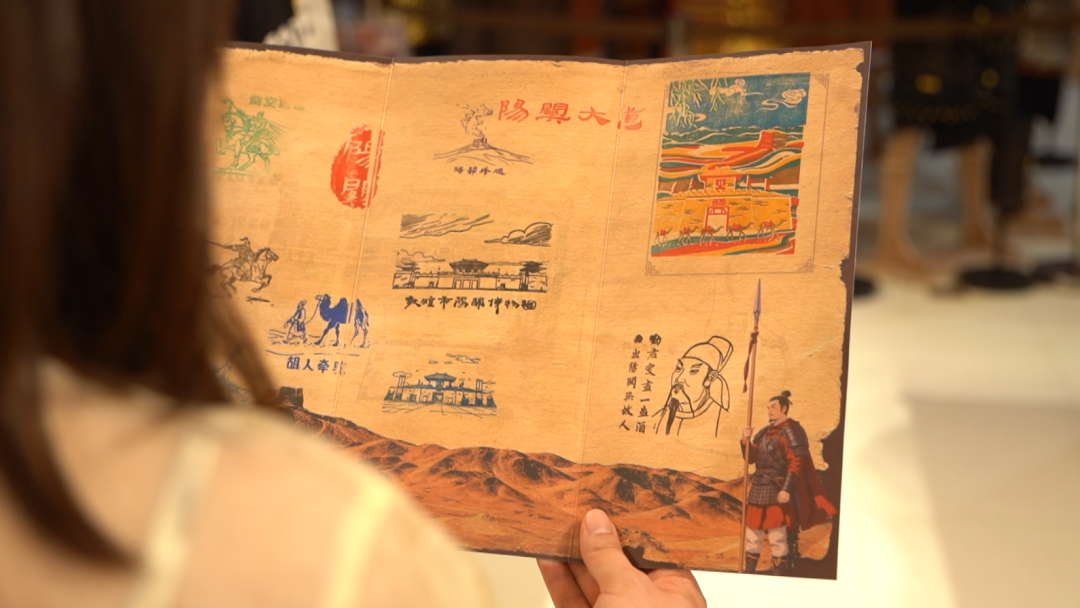 陽關大道
陽關
陽關烽燧
敦煌市陽關博物館
胡人牽駝
勸君更盡一杯酒
西出陽關無故人